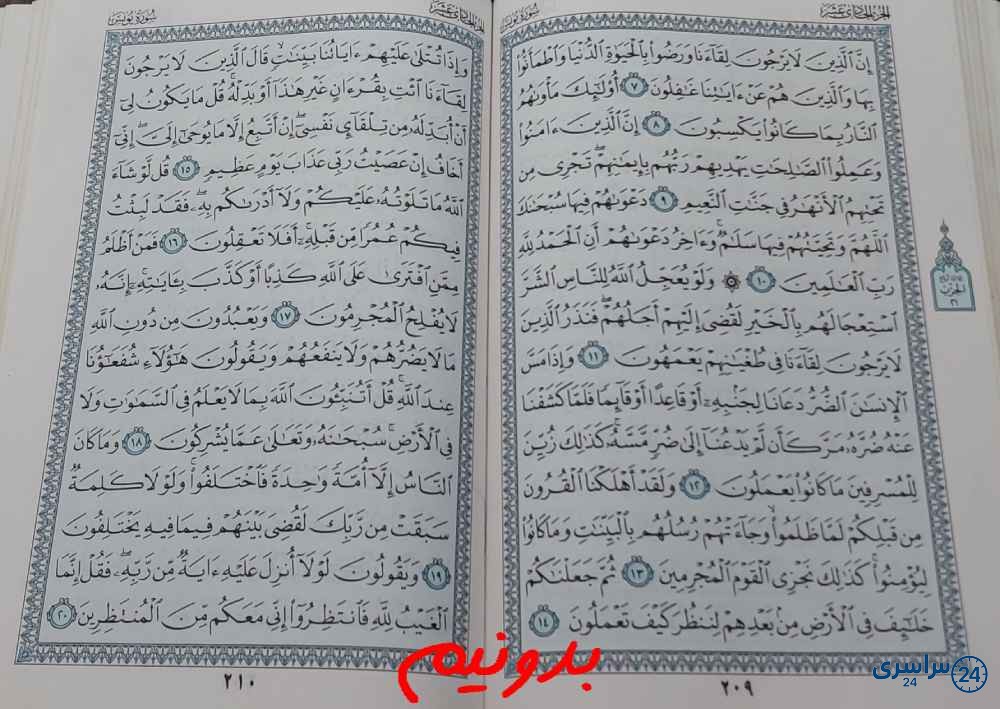 الجزء الحادي عشر
سورة يونس
إِنَّ ٱلَّذِينَ لَا يَرْجُونَ لِقَآءَنَا وَرَضُوا۟ بِٱلْحَيَوٰةِ ٱلدُّنْيَا وَٱطْمَأَنُّوا۟
بِهَا وَٱلَّذِينَ هُمْ عَنْ ءَايَٰتِنَا غَٰفِلُونَ ٧ أُو۟لَٰٓئِكَ مَأْوَىٰهُمُ
ٱلنَّارُ بِمَا كَانُوا۟ يَكْسِبُونَ ٨ إِنَّ ٱلَّذِينَ ءَامَنُوا۟
وَعَمِلُوا۟ ٱلصَّٰلِحَٰتِ يَهْدِيهِمْ رَبُّهُم بِإِيمَٰنِهِمْ ۖ تَجْرِى مِن
تَحْتِهِمُ ٱلْأَنْهَٰرُ فِى جَنَّٰتِ ٱلنَّعِيمِ ٩ دَعْوَىٰهُمْ فِيهَا سُبْحَٰنَكَ
ٱللَّهُمَّ وَتَحِيَّتُهُمْ فِيهَا سَلَٰمٌ ۚ وَءَاخِرُ دَعْوَىٰهُمْ أَنِ ٱلْحَمْدُ لِلَّهِ
رَبِّ ٱلْعَٰلَمِينَ ١٠ ۞ وَلَوْ يُعَجِّلُ ٱللَّهُ لِلنَّاسِ ٱلشَّرَّ
ٱسْتِعْجَالَهُم بِٱلْخَيْرِ لَقُضِىَ إِلَيْهِمْ أَجَلُهُمْ ۖ فَنَذَرُ ٱلَّذِينَ
لَا يَرْجُونَ لِقَآءَنَا فِى طُغْيَٰنِهِمْ يَعْمَهُونَ ١١ وَإِذَا مَسَّ
ٱلْإِنسَٰنَ ٱلضُّرُّ دَعَانَا لِجَنۢبِهِۦٓ أَوْ قَاعِدًا أَوْ قَآئِمًا فَلَمَّا كَشَفْنَا
عَنْهُ ضُرَّهُۥ مَرَّ كَأَن لَّمْ يَدْعُنَآ إِلَىٰ ضُرٍّ مَّسَّهُۥ ۚ كَذَٰلِكَ زُيِّنَ
لِلْمُسْرِفِينَ مَا كَانُوا۟ يَعْمَلُونَ ١٢ وَلَقَدْ أَهْلَكْنَا ٱلْقُرُونَ
مِن قَبْلِكُمْ لَمَّا ظَلَمُوا۟ ۙ وَجَآءَتْهُمْ رُسُلُهُم بِٱلْبَيِّنَٰتِ وَمَا كَانُوا۟
لِيُؤْمِنُوا۟ ۚ كَذَٰلِكَ نَجْزِى ٱلْقَوْمَ ٱلْمُجْرِمِينَ ١٣ ثُمَّ جَعَلْنَٰكُمْ
خَلَٰٓئِفَ فِى ٱلْأَرْضِ مِنۢ بَعْدِهِمْ لِنَنظُرَ كَيْفَ تَعْمَلُونَ ١٤
٢٠٩
الحزب
٢١
الجزء الحادي عشر
سورة يونس
وَإِذَا تُتْلَىٰ عَلَيْهِمْ ءَايَاتُنَا بَيِّنَٰتٍ ۙ قَالَ ٱلَّذِينَ لَا يَرْجُونَ
لِقَآءَنَا ٱئْتِ بِقُرْءَانٍ غَيْرِ هَٰذَآ أَوْ بَدِّلْهُ ۚ قُلْ مَا يَكُونُ لِىٓ
أَنْ أُبَدِّلَهُۥ مِن تِلْقَآئِ نَفْسِىٓ ۖ إِنْ أَتَّبِعُ إِلَّا مَا يُوحَىٰٓ إِلَىَّ ۖ إِنِّىٓ
أَخَافُ إِنْ عَصَيْتُ رَبِّى عَذَابَ يَوْمٍ عَظِيمٍ ١٥ قُل لَّوْ شَآءَ
ٱللَّهُ مَا تَلَوْتُهُۥ عَلَيْكُمْ وَلَآ أَدْرَىٰكُم بِهِۦ ۖ فَقَدْ لَبِثْتُ
فِيكُمْ عُمُرًا مِّن قَبْلِهِۦٓ ۚ أَفَلَا تَعْقِلُونَ ١٦ فَمَنْ أَظْلَمُ
مِمَّنِ ٱفْتَرَىٰ عَلَى ٱللَّهِ كَذِبًا أَوْ كَذَّبَ بِـَٔايَٰتِهِۦٓ ۚ إِنَّهُۥ
لَا يُفْلِحُ ٱلْمُجْرِمُونَ ١٧ وَيَعْبُدُونَ مِن دُونِ ٱللَّهِ
مَا لَا يَضُرُّهُمْ وَلَا يَنفَعُهُمْ وَيَقُولُونَ هَٰٓؤُلَآءِ شُفَعَٰٓؤُنَا
عِندَ ٱللَّهِ ۚ قُلْ أَتُنَبِّـُٔونَ ٱللَّهَ بِمَا لَا يَعْلَمُ فِى ٱلسَّمَٰوَٰتِ وَلَا
فِى ٱلْأَرْضِ ۚ سُبْحَٰنَهُۥ وَتَعَٰلَىٰ عَمَّا يُشْرِكُونَ ١٨ وَمَا كَانَ
ٱلنَّاسُ إِلَّآ أُمَّةً وَٰحِدَةً فَٱخْتَلَفُوا۟ ۚ وَلَوْلَا كَلِمَةٌ
سَبَقَتْ مِن رَّبِّكَ لَقُضِىَ بَيْنَهُمْ فِيمَا فِيهِ يَخْتَلِفُونَ
١٩ وَيَقُولُونَ لَوْلَآ أُنزِلَ عَلَيْهِ ءَايَةٌ مِّن رَّبِّهِۦ ۖ فَقُلْ إِنَّمَا
ٱلْغَيْبُ لِلَّهِ فَٱنتَظِرُوٓا۟ إِنِّى مَعَكُم مِّنَ ٱلْمُنتَظِرِينَ ٢٠
٢١٠
بدونیم
سراسری 24
24